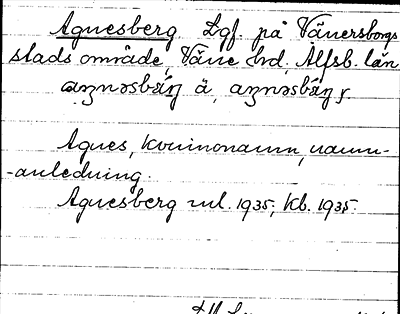 Agnesberg Lgf. på Vänersborgs
stads område, Väne hd, Älfsb. län
aŋnəsbærj ä, aŋnəsbærj,
Agnes, kvinnonamn, namn-
-anledning.
Agnesberg ml. 1935, kb. 1935.